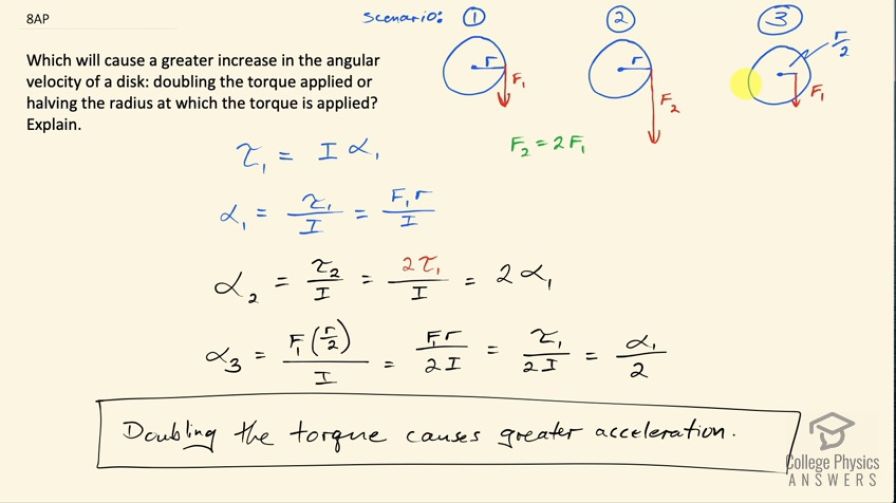 8AP
scenario: ① ② ③
Which will cause a greater increase in the angular
velocity of a disk: doubling the torque applied or
halving the radius at which the torque is applied?
Explain.
r F₁
r F₂
r/2 F₁
F₂ = 2F₁
τ₁ = I α₁
α₁ = τ₁/I = F₁r/I
α₂ = τ₂/I = 2τ₁/I = 2α₁
α₃ = F₁(r/2)/I = F₁r/2I = τ₁/2I = α₁/2
Doubling the torque causes greater acceleration.
College Physics
ANSWERS